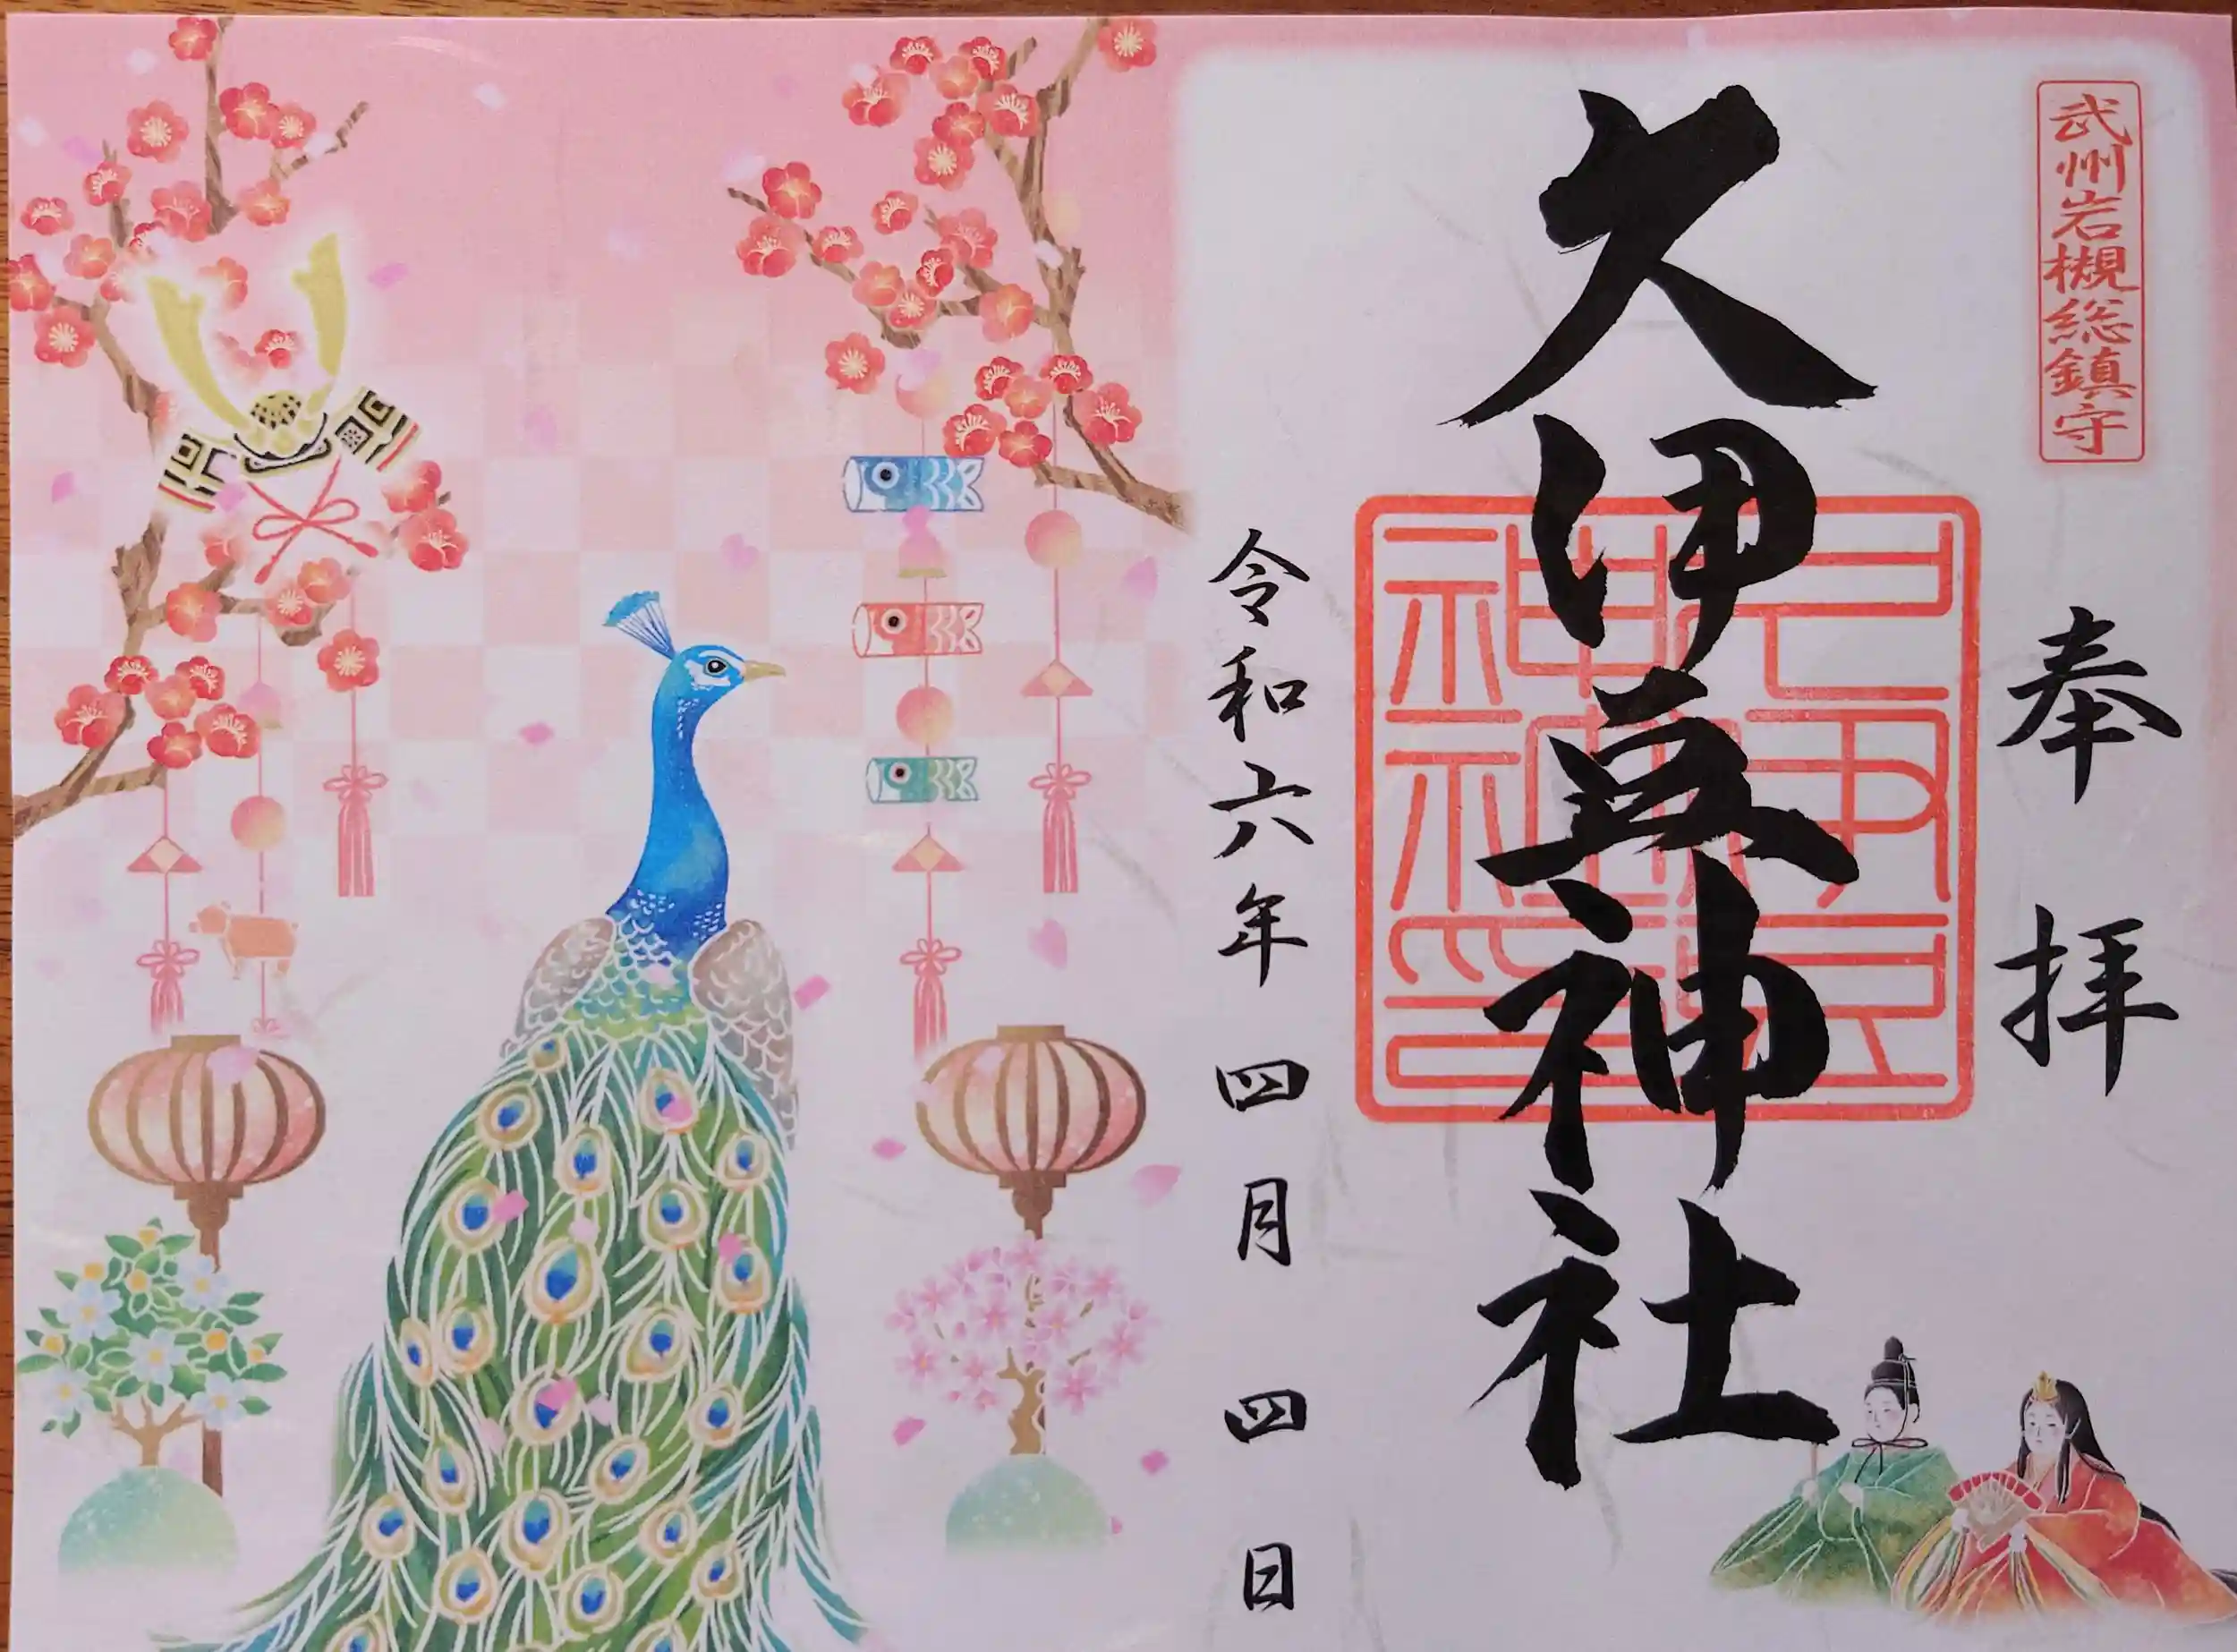 武州岩槻総鎮守
奉拝
久伊豆神社
久伊豆神社神印
令和六年四月四日